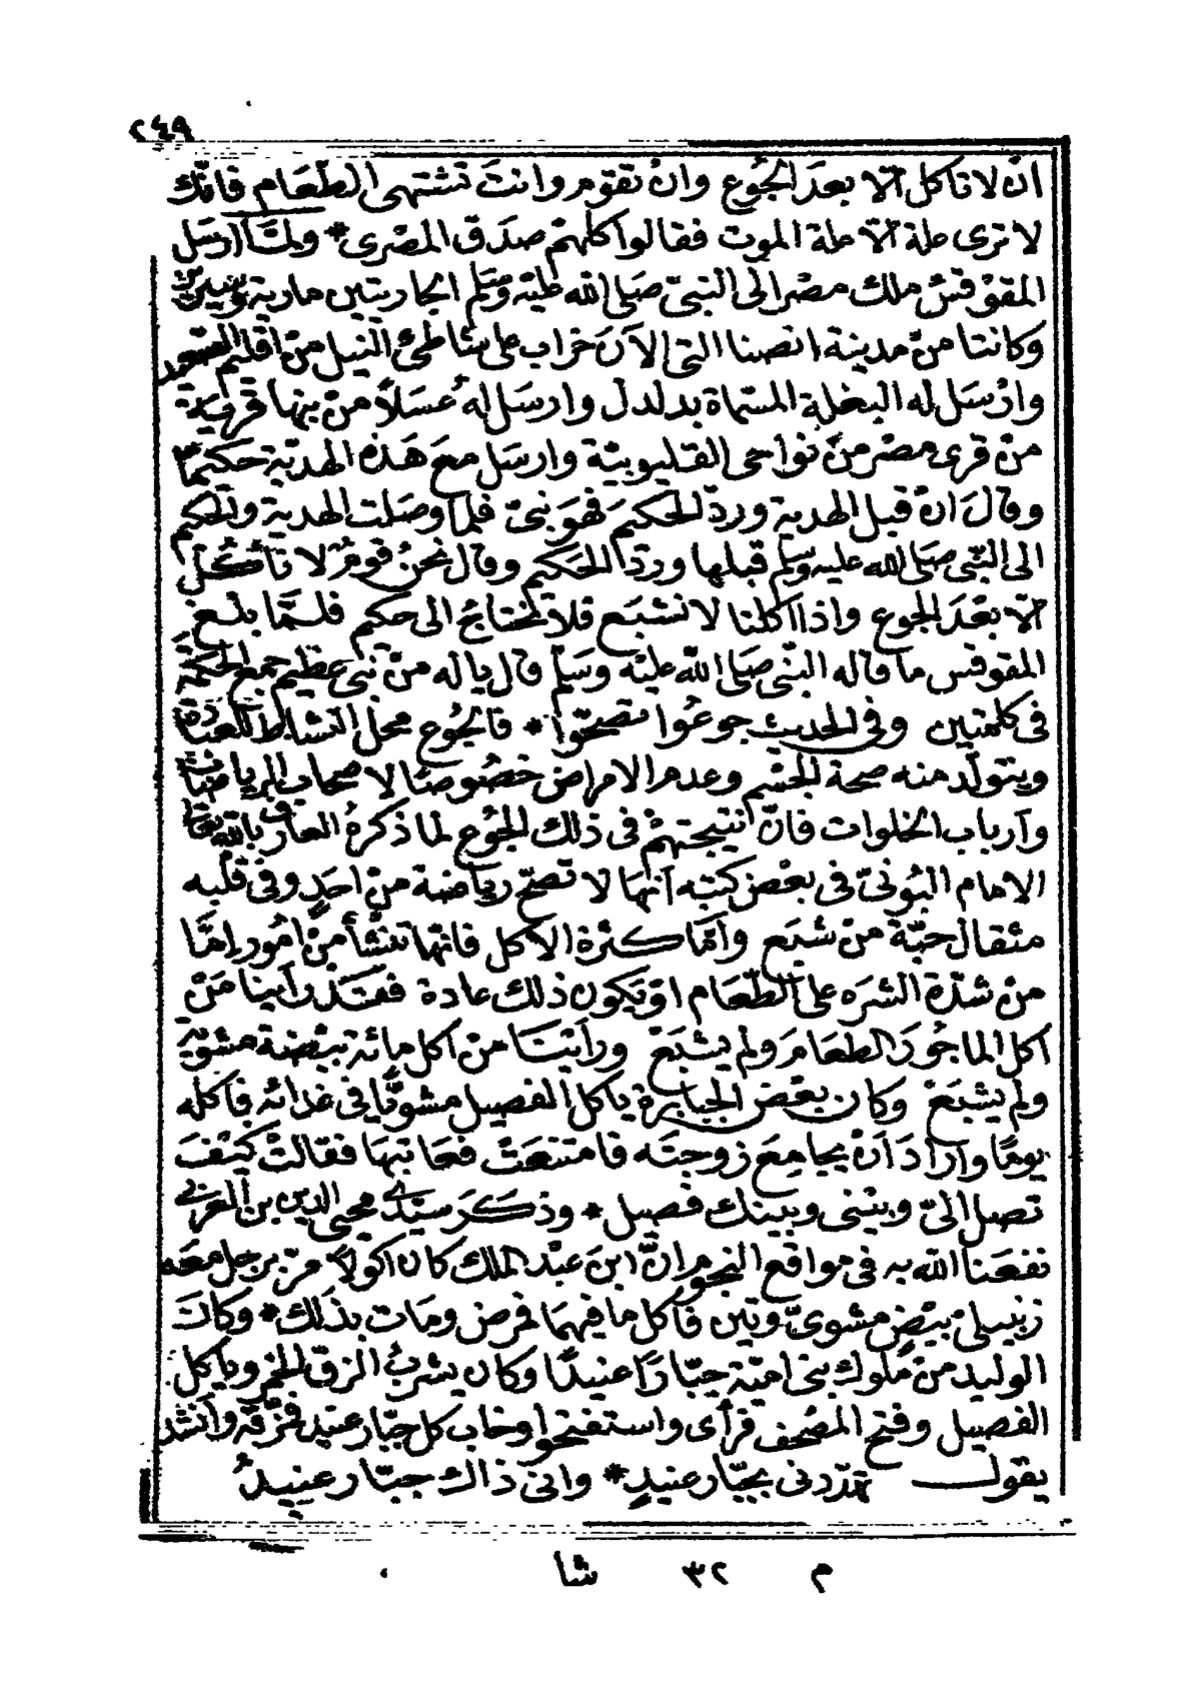 ٢٤٩
ان لا تاكل الّا بعدَ الجُوع وانْ تقوم وانتَ تشتهى الطّعَام فانّك
لا ترى علة الّا علة الموت فقالوا كلهمْ صدَق المصْرى * ولمّا ارسَل
المقوْقسُ ملك مصْر الى النبىّ صَلى الله عليْه وسَلم الجاريتين مارية وسيرين
وكانتا منْ مدينة انصنا التى الآنَ خراب على شاطئ النيل منْ اقليم الصّعيد
وارْسَل له البغلة المسَمّاة بدلدل وارسَل لهُ عسَلاً منْ بنها قرية
منْ قرى مصْر منْ نواحى القليوبيّة وارسَل معَ هَذه الهديّة حكيمًا
وقالَ انْ قبل الهدية وردّ الحكيمَ فهوَ نبىّ فلما وصَلت الهدية والحكيم
الى النّبى صَلى الله عليه وسلم قبلها وردّ الحَكيم وقال نحنُ قومٌ لا نأكُلُ
الّا بعْدَ الجوع واذا اكلنا لا نشبَع فلا نحتاجُ الى حكيم فلمَّا بلغَ
المقوقس ما قاله النّبى صَلى اللّه عليْه وسَلم قال ياله منْ نبى عظيم جمع الحكمَة
فى كلمتين وفى الحديث جوعُوا تصحّوا * فالجُوع محل النشاط للعبَادة
ويتولّد منه صحة الجسْم وعدم الامراض خصُوصًا لاصحاب الرياضات
وارباب الخلوات فانّ نتيجتهمْ فى ذلك الجُوع لما ذكرهُ العارف بالله تعَالى
الامام البُونىّ فى بعْض كتبه انّهَا لا تصحّ رياضة منْ احَدٍ وفى قلْبه
مثقال حبّة منْ شبَع وامّا كثرة الاكل فانّها تنشْأ منْ امُور امَّا
منْ شدّة الشرَه على الطّعَام اوْ يكون ذلك عادة فقَدْ رأينا مَنْ
اكل الماجُورَ الطعَامَ ولم يشبَعْ ورأيْنَا منْ اكل مائة بيْضة مشوّية
ولم يشبَعْ وكان بعْض الجبابرة ياكل الفصيل مشويًّا فى غدائه فاكله
يومًا وارادَ انْ يجامِعَ زوجتَه فامتنعَتْ فعَاتبهَا فقالتْ كيْفَ
تصل الىّ وبيْنى وبينك فصيل * وذكَرَ سيّدى محيى الدين بن العَربى
نفعَنا الله به فى مواقع النجُوم انَّ ابنَ عبْد الملك كان اكولاً مرّ برجل معَه
زنبيلى بيْض مشوىّ وتين فاكل ما فيهمَا فمرض ومَات بذلك * وكانَ
الوليد منْ مُلوك بنى اميّة جبّارًا عنيدًا وكان يشربُ الزق الخمر وياكل
الفصيل وفتح المصْحف فرأى واستفتحوا وخاب كل جبّار عنيد فمزّقه وانشد
يقول تهدّدنى بجبّار عنيدٍ * وانى ذاك جبّار عنيدُ
م ٣٢ شا